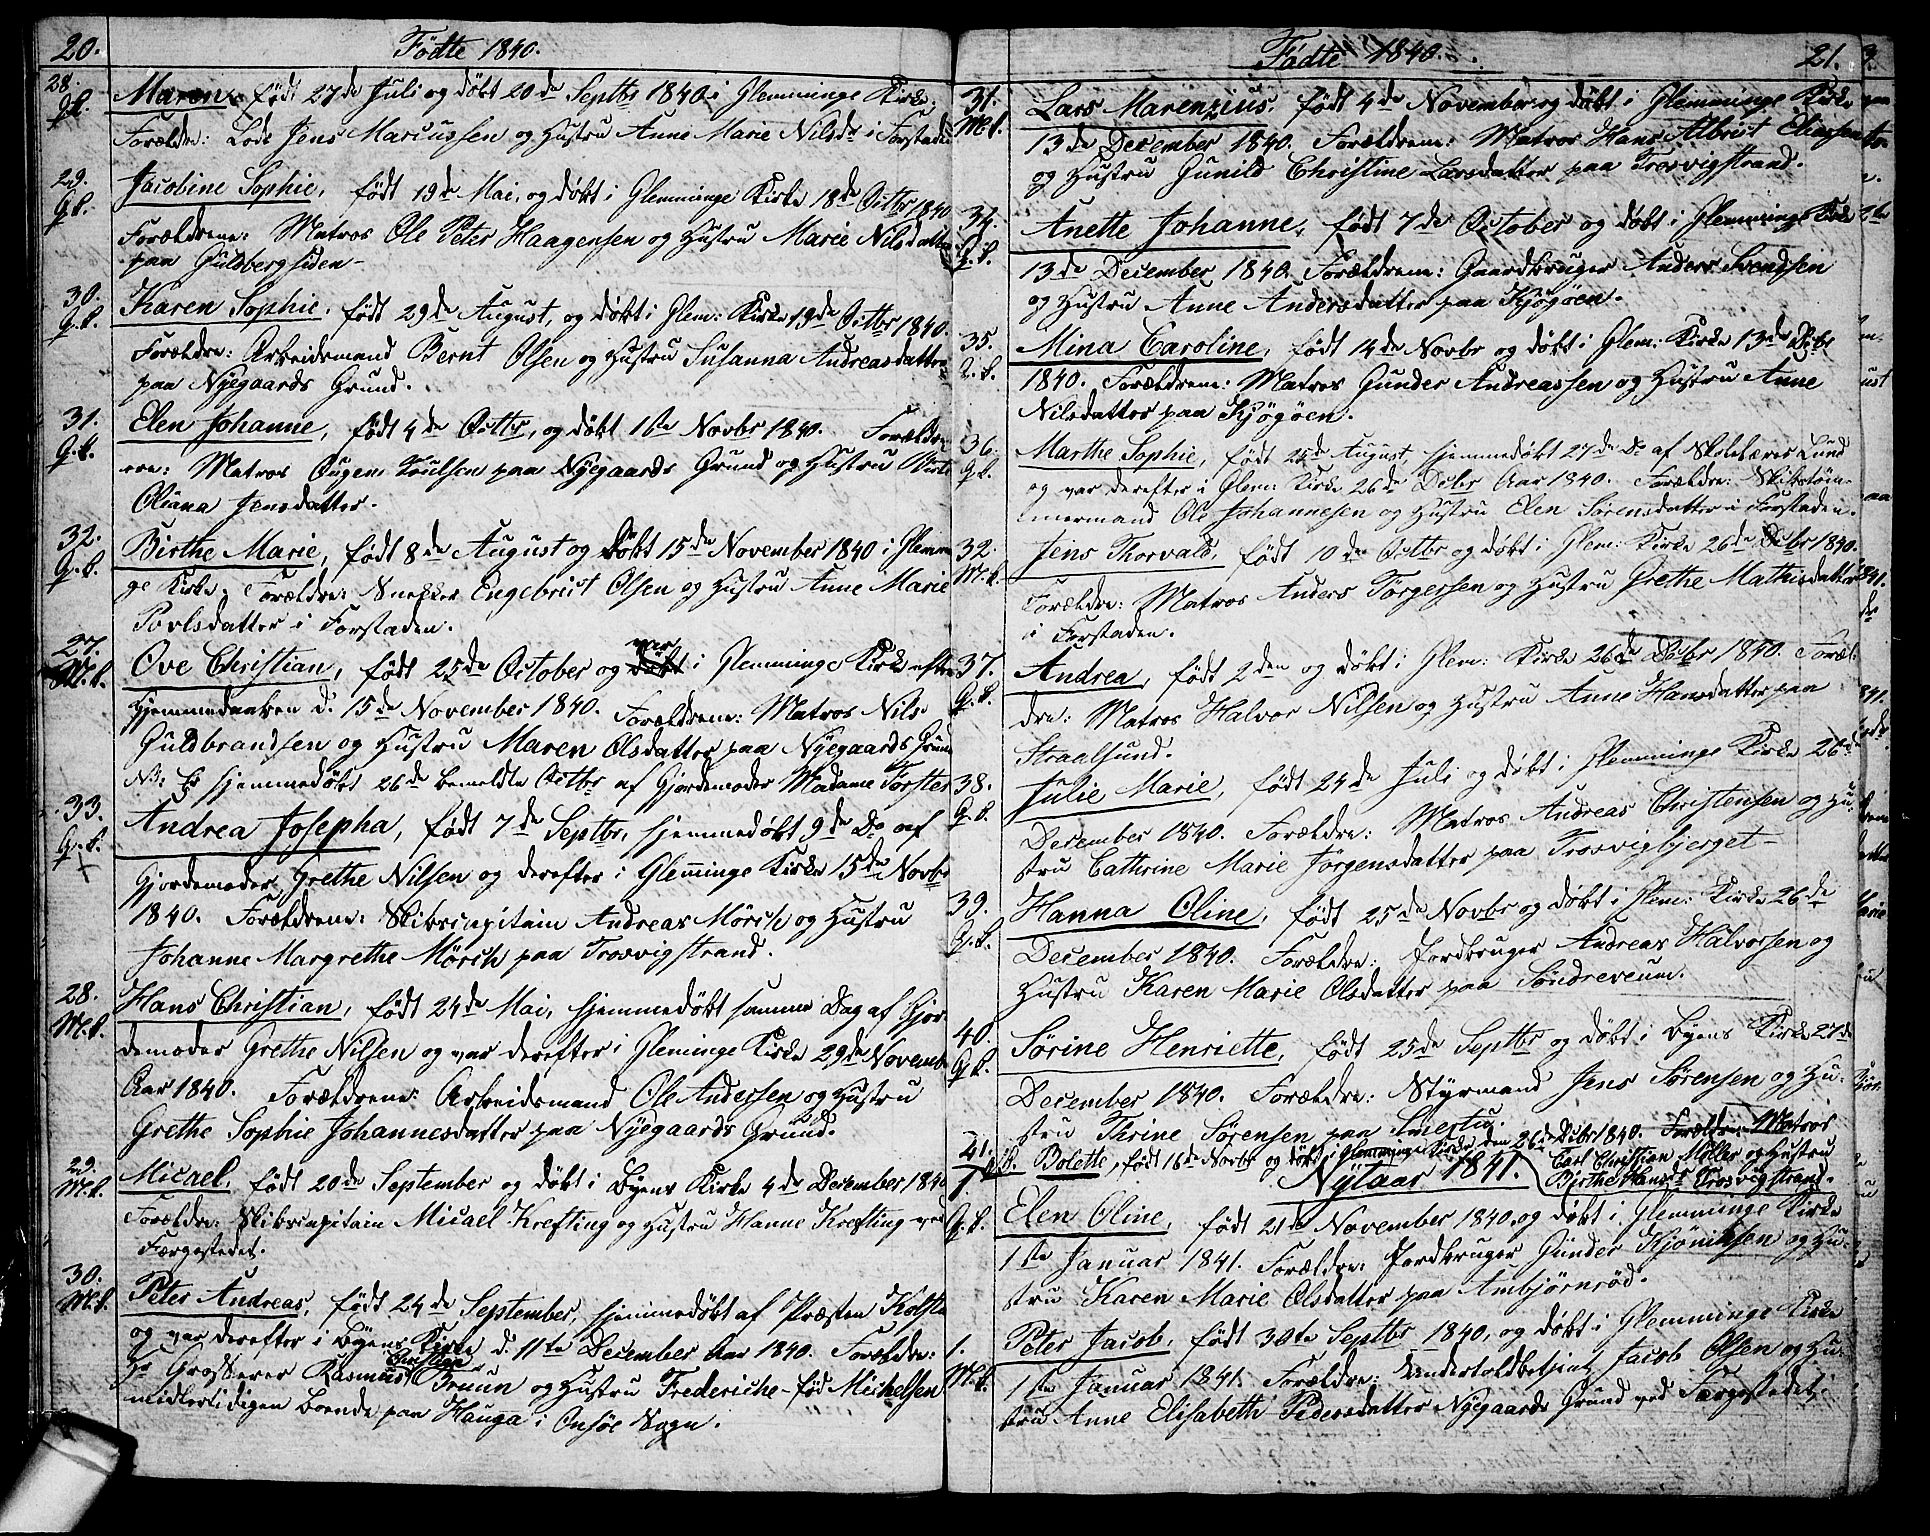 20. Födte 1840.
28. Maren, födt 27de Juli og döbt 20de Septbr 1840 i Glemminge Kirke.
P.b. Forældre: Lods Jens Marcussen og Hustru Anne Marie Nilsdr i Forstaden
29. Jacobine Sophie, födt 19de Mai, og döbt i Glemminge Kirke 18de Octbr 1840
P.b. Forældrene: Matros Ole Peter Haagensen og Hustru Marie Nilsdatter
paa Guldbergsiden
30. Karen Sophie, födt 29de August, og döbt i Glem: Kirke 19de Octbr 1840.
P.b. Forældre: Arbeidsmand Bernt Olsen og Hustru Susanna Andreasdatter
paa Nyegaards Grund.
31. Elen Johanne, födt 4de Octbr, og döbt 1ste Novbr 1840. Foræld-
P.b. rene: Matros Eugen Poulsen paa Nyegaards Grund og Hustru
Oliana Jensdatter.
32. Birthe Marie, födt 8de August og döbt 15de November 1840 i Glemmin-
P.b. ge Kirke. Forældre: Snekker Engebrict Olsen og Hustru Anne Marie
Povlsdatter i Forstaden.
27. Ove Christian, födt 25de October og var i Glemminge Kirke efter
M.b. Hjemmedaaben d. 15de November 1840. Forældrene: Matros Nils
Guldbrandsen og Hustru Maren Olsdatter paa Nyegaards Grund
NB: Er hjemmedöbt 26de bemeldte Octbr af Gjordemoder Madame Torster
33. Andrea Josepha, födt 7de Septbr, hjemmedöbt 9de Do af
P.b. Gjordemoder Grethe Nilsen og derefter i Glemminge Kirke 15de Novbr
1840. Forældrene: Skibscapitain Andreas Mörch og Hustru
Johanne Margrethe Mörch paa Trosvigstrand.
28. Hans Christian, födt 24de Mai, hjemmedöbt samme Dag af Gjor-
M.b. demoder Grethe Nilsen og var derefter i Gleminge Kirke 29de Novembr
Aar 1840. Forældrene: Arbeidsmand Ole Andersen og Hustru
Grethe Sophie Johannesdatter paa Nyegaards Grund.
29. Micael, födt 20de September og döbt i Byens Kirke 4de December 1840
M.b. Forældre: Skibscapitain Micael Krefting og Hustru Hanne Krefting ved
Færgestedet.
30. Peter Andreas, födt 24de September, hjemmedöbt af Præsten Kolsta
M.b. og var derefter i Byens Kirke d. 11te December Aar 1840. Forældre:
Hr Grosserer Rasmus Christian Bruun og Hustru Frederiche född Michelsen
midlertidigen boende paa Hauga i Onsöe Sogn.
Födte 1840. 21.
31. Lars Marenzius, födt 4de November og döbt i Glemminge Kirke
M.b. 13de December 1840. Forældrene: Matros Hans Albrict Eliassen
og Hustru Gunild Christine Larsdatter paa Trosvigstrand.
34. Anette Johanne, födt 7de October og döbt i Glemminge Kirke
P.b. 13de December 1840. Forældrene: Gaardbruger Anders Svendsen
og Hustru Anne Andersdatter paa Kjögöen.
35. Mina Caroline, födt 14de Novbr og döbt i Glem: Kirke 13de Dcbr
P.b. 1840. Forældrene: Matros Gunder Andreassen og Hustru Anne
Nilsdatter paa Kjögöen.
36. Marthe Sophie, födt 25de August, hjemmedöbt 27de Do af Skolelærer Lund
P.b. og var derefter i Glem: Kirke 26de Dcbr Aar 1840. Forældre: Skibstöm-
mermand Ole Johannesen og Hustru Elen Sörensdatter i Forstaden.
32. Jens Thorvald, födt 10de Octbr og döbt i Glem: Kirke 26de Dcbr 1840.
M.b. Forældre: Matros Anders Törgersen og Hustru Grethe Mathisdatter
i Forstaden.
37. Andrea, födt 2den og döbt i Glem: Kirke 26de Decbr 1840. Foræl-
P.b. dre: Matros Halvor Nilsen og Hustru Anne Hansdatter paa
Straalsund.
38. Julie Marie, födt 24de Juli og döbt i Glemminge Kirke 26de
P.b. December 1840. Forældre: Matros Andreas Christensen og Hu-
stru Cathrine Marie Jörgensdatter paa Trosvigbjerget
39. Hanna Oline, födt 25de Novbr og döbt i Glem: Kirke 26de
P.b. December 1840. Forældre: Jordbruger Andreas Halvorsen og
Hustru Karen Marie Olsdatter paa Söndreveum.
40. Sörine Henriette, födt 25de Septbr og döbt i Byens Kirke 27de
P.b. December 1840. Forældre: Styrmand Jens Sörensen og Hu-
stru Thrine Sörensen paa Smertu.
41. P.b. Bolette, födt 16de Novbr og döbt i Glemminge Kirke den 26de Dcbr 1840. Forældre: Matros
Carl Christian Möller og Hustru
Birthe Hansdr Trosvigstrand.
Nytaar 1841.
1. Elen Oline, födt 21de November 1840, og döbt i Glemminge Kirke
P.b. 1ste Januar 1841. Forældre: Jordbruger Gunder Kjönigsen og Hu-
stru Karen Marie Olsdatter paa Ambjörnröd.
1. Peter Jacob, födt 30te Septbr 1840, og döbt i Glemminge Kirke
M.b. 1ste Januar 1841. Forældre: Undertoldbetjent Jacob Olsen og Hu-
stru Anne Elisabeth Pedersdatter Nyegaards Grund ved Færgestedet.